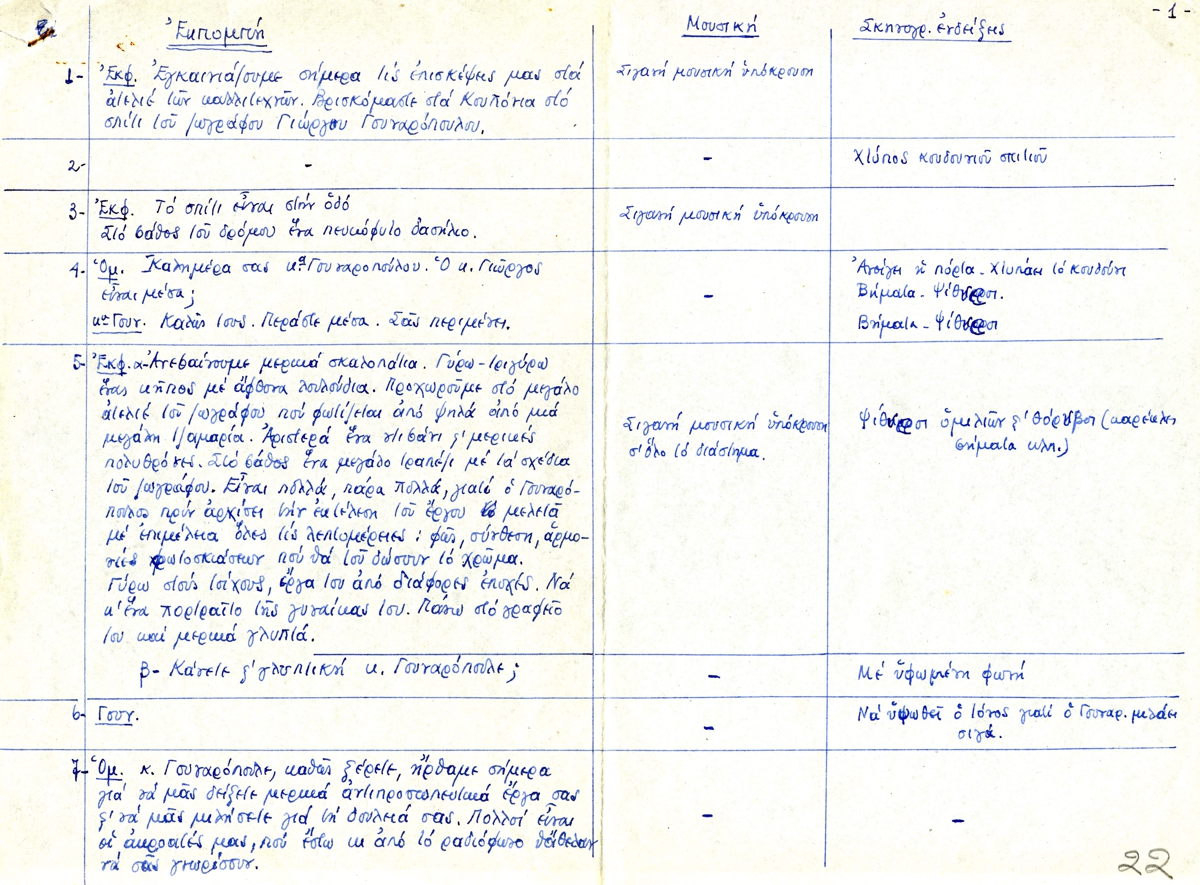 - 1 -
Ἐκπομπή
Μουσική
Σκηνογρ. ἐνδείξεις
1- Ἐκφ. Ἐγκαινιάζουμε σήμερα τίς ἐπισκέψεις μας στά
ἀτελιέ τῶν καλλιτεχνῶν. Βρισκόμαστε στά Κουπόνια στό
σπίτι τοῦ ζωγράφου Γιώργου Γουναρόπουλου.
Σιγανή μουσική ὑπόκρουση
2- -
-
Χτύπος κουδουνιοῦ σπιτιοῦ
3- Ἐκφ. Τό σπίτι εἶναι στήν ὁδό
Στό βάθος τοῦ δρόμου ἕνα πευκόφυτο δασύλιο.
Σιγανή μουσική ὑπόκρουση
4- Ὁμ. Καλημέρα σας κα Γουναροπούλου. Ὁ κ. Γιῶργος
εἶναι μέσα;
κα Γουν. Καλῶς τους. Περάστε μέσα. Σᾶς περιμένει.
-
Ἀνοίγει ἡ πόρτα - Χτυπάει τό κουδούνι
Βήματα - Ψίθυροι.
Βήματα - Ψίθυροι
5- Ἐκφ. α- Ἀνεβαίνουμε μερικά σκαλοπάτια. Γύρω-τριγύρω
ἕνας κῆπος μέ ἄφθονα λουλούδια. Προχωροῦμε στό μεγάλο
ἀτελιέ τοῦ ζωγράφου πού φωτίζεται ἀπό ψηλά ἀπό μιά
μεγάλη τζαμαρία. Ἀριστερά ἕνα ντιβάνι ξ' μερικές
πολυθρόνες. Στό βάθος ἕνα μεγάλο τραπέζι μέ τά σχέδια
τοῦ ζωγράφου. Εἶναι πολλά, πάρα πολλά, γιατί ὁ Γουναρό-
πουλος πρίν ἀρχίσει τήν ἐκτέλεση τοῦ ἔργου μελετᾶ
μέ ἐπιμέλεια ὅλες τίς λεπτομέρειες: φῶς, σύνθεση, ἁρμο-
νίες φωτοσκιάσεων πού θά τοῦ δώσουν τό χρῶμα.
Γύρω στούς τοίχους, ἔργα του ἀπό διάφορες ἐποχές. Νά
κ' ἕνα πορτραῖτο τῆς γυναίκας του. Πάνω στό γραφεῖο
του καί μερικά γλυπτά.
Σιγανή μουσική ὑπόκρουση
σ' ὅλο τό διάστημα.
Ψίθυροι ὁμιλιῶν ξ' θόρυβοι (καρέκλες
βήματα κλπ.)
β- Κάνετε ξ' γλυπτική κ. Γουναρόπουλε;
-
Μέ ὑψωμένη φωνή
6- Γουν.
-
Νά ὑψωθεῖ ὁ τόνος γιατί ὁ Γουναρ. μιλάει
σιγά.
7- Ὁμ. κ. Γουναρόπουλε, καθώς ξέρετε, ἤρθαμε σήμερα
γιά νά μᾶς δείξετε μερικά ἀντιπροσωπευτικά ἔργα σας
ξ' νά μᾶς μιλήσετε γιά τή δουλειά σας. Πολλοί εἶναι
οἱ ἀκροατές μας, πού ἔστω κι ἀπό τό ραδιόφωνο θἄθελαν
νά σᾶς γνωρίσουν.
-
-
22